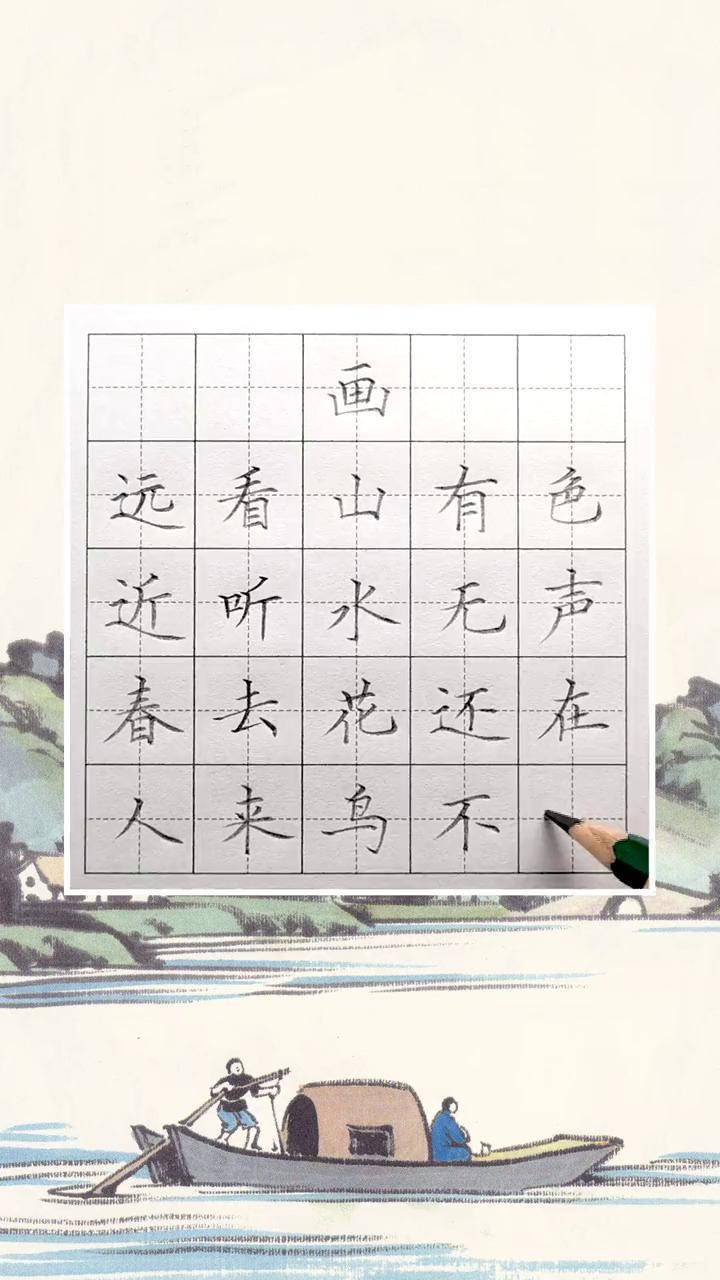 画
远看山有色
近听水无声
春去花还在
人来鸟不